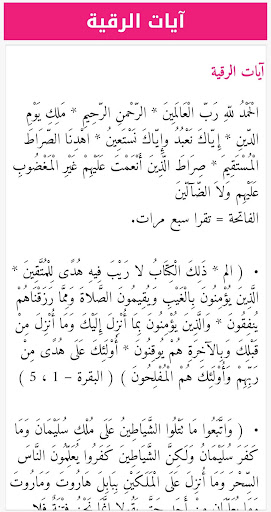 آيات الرقية
آيات الرقية
الْحَمْدُ للّهِ رَبِّ الْعَالَمِينَ * الرَّحْمنِ الرَّحِيمِ * مَلِكِ يَوْمِ
الدِّينِ * إِيَّاكَ نَعْبُدُ وإِيَّاكَ نَسْتَعِينُ * اهْدِنَا الصِّرَاطَ
المُسْتَقِيمَ * صِرَاطَ الَّذِينَ أَنْعَمْتَ عَلَيْهِمْ غَيْرِ المَغْضُوبِ
عَلَيْهِمْ وَلَا الضَّآلِّينَ
الفاتحة = تقرا سبع مرات.
• ( الم * ذَلِكَ الْكِتَابُ لَا رَيْبَ فِيهِ هُدًى لِلْمُتَّقِينَ *
الَّذِينَ يُؤْمِنُونَ بِالْغَيْبِ وَيُقِيمُونَ الصَّلَاةَ وَمِمَّا رَزَقْنَاهُمْ
يُنفِقُونَ * وَالَّذِينَ يُؤْمِنُونَ بِمَا أُنْزِلَ إِلَيْكَ وَمَا أُنْزِلَ مِنْ
قَبْلِكَ وَبِالْآخِرَةِ هُمْ يُوقِنُونَ * أُوْلَئِكَ عَلَى هُدًى مِنْ
رَبِّهِمْ وَأُوْلَئِكَ هُمُ الْمُفْلِحُونَ ) ( البقرة – 1 ، 5 )
• ( وَاتَّبَعُوا مَا تَتْلُوا الشَّيَاطِينُ عَلَى مُلْكِ سُلَيْمَانَ وَمَا
كَفَرَ سُلَيْمَانُ وَلَكِنَّ الشَّيَاطِينَ كَفَرُوا يُعَلِّمُونَ النَّاسَ
السِّحْرَ وَمَا أُنزِلَ عَلَى الْمَلَكَيْنِ بِبَابِلَ هَارُوتَ وَمَارُوتَ
وَمَا يُعَلِّمَانِ مِنْ أَحَدٍ حَتَّى يَقُولَا إِنَّمَا نَحْنُ فِتْنَةٌ فَلَا